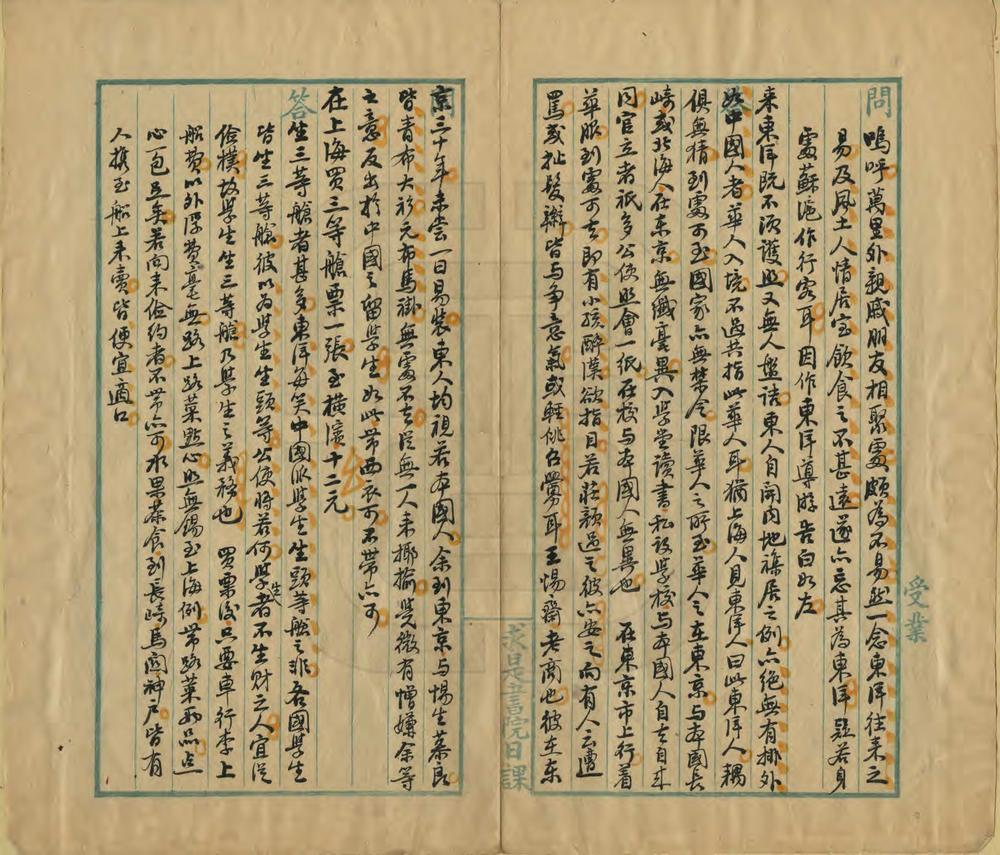 受業
問
嗚呼萬里外親戚朋友相聚處頗為不易然一念東洋往來之
易及風土人情居室飲食之不甚遠遂亦忘其為東洋矣若身
處蘇滬作行客耳因作東洋導游告白如左
來東洋既不須護照又無人盤詰東人自開內地雜居之例亦絕無有排外
如中國人者華人入境不過共指此華人耳猶上海人見東洋人曰此東洋人耦
俱無猜到處可至國家亦無禁令限華人之所至華人之在東京與本國長
崎或北海人在東京無纖毫異入學堂讀書私設學校與本國人自去自來
同官立者祇多公使照會一紙在校与本國人無異也 在東京市上行着
華服到處可去即有小孩醉漢欲指目若莊顏過之彼亦安之向有人云遭
罵或扯髮辮皆与爭意氣或輕佻召釁耳王惕齋老商也彼在東
求是書院日課
京三十年未嘗一日易裝東人均視若本國人余到東京与惕生慕良
皆青布大衫元布馬褂無處不去從無一人來揶揄覺微有憎嫌余等
之意反出於中國之留學生如此帶西衣可不帶亦可
在上海買三等艙票一張至橫濱十二元
答
生三等艙者甚多東洋每笑中國派學生生頭等艙之非吾國學生
皆生三等艙彼以為學生生頭等公使將若何學生者不生財之人宜從
儉樸故學生生三等艙乃學生之義務也 買票後只要車行李上
船費以外浮費毫無路上路菜點心照無錫至上海例帶路菜兩品点
心一包足矣若向來儉約者不帶亦可水果茶食到長崎馬關神戶皆有
人携至船上來賣皆便宜適口